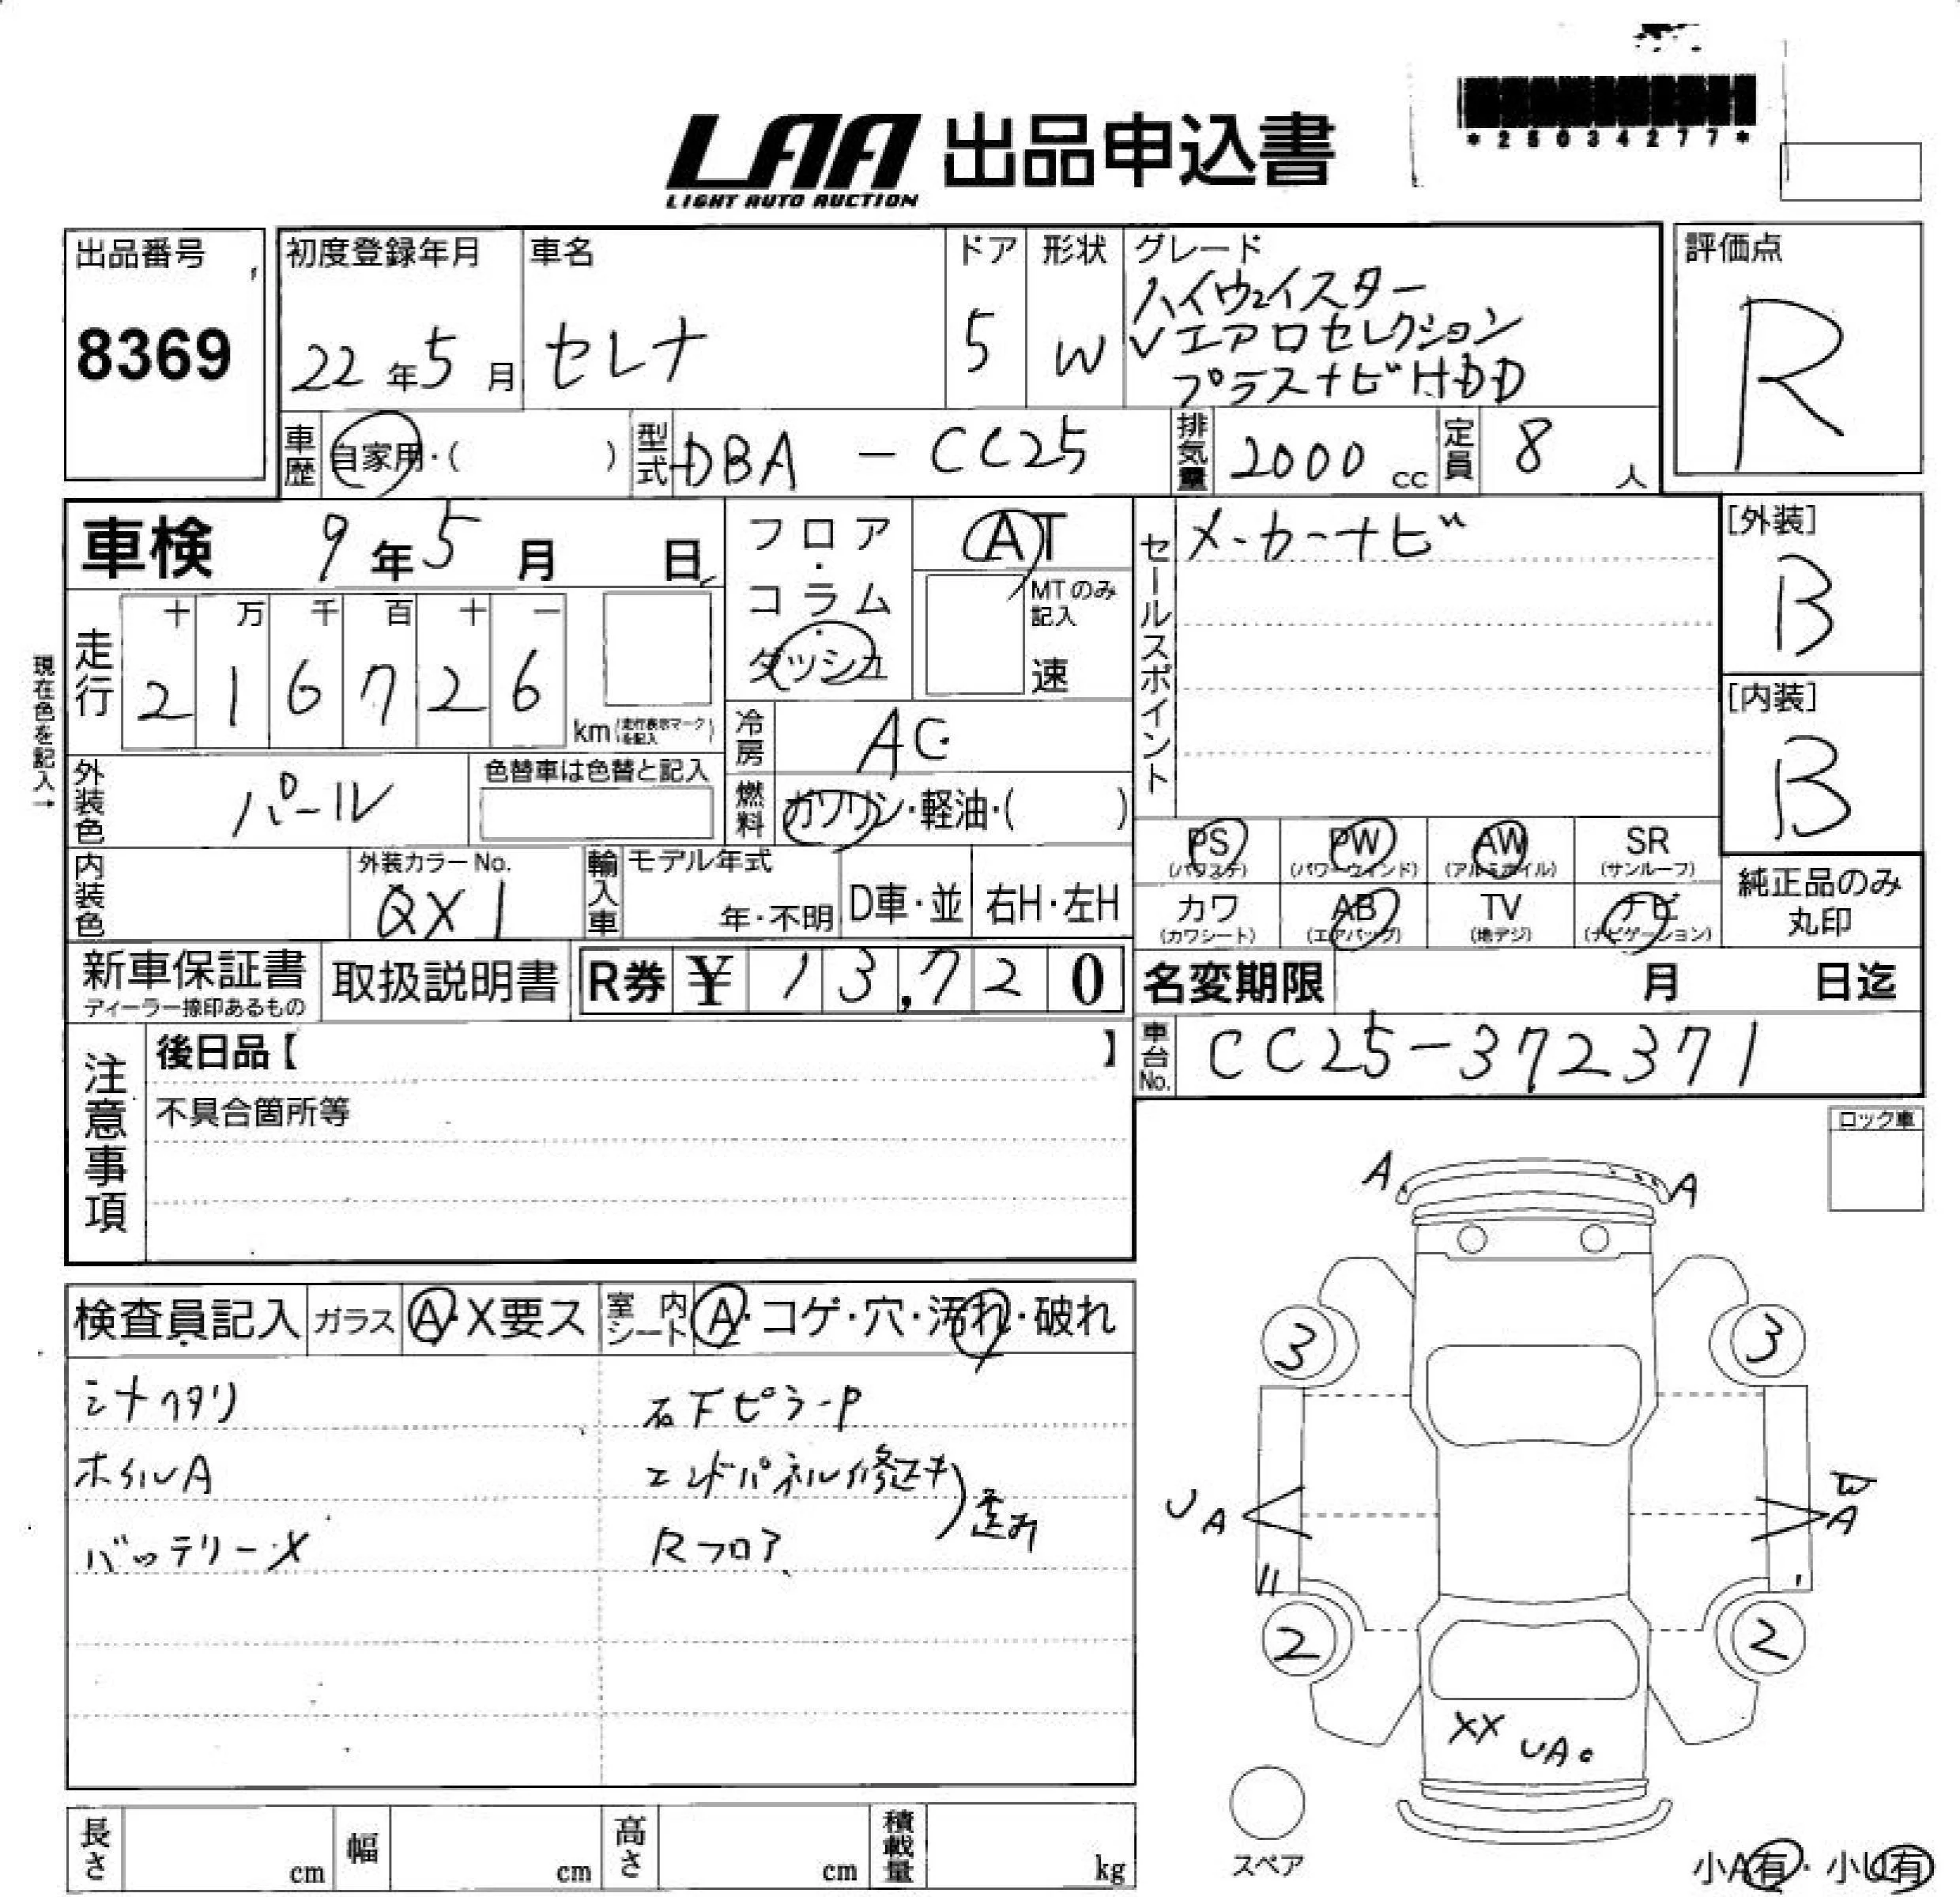 *25034277*
LAA 出品申込書
LIGHT AUTO AUCTION
出品番号
8369
初度登録年月
22年5月
車名
セレナ
ドア
5
形状
W
グレード
ハイウェイスター
Vエアロセレクション
プラスナビHDD
評価点
R
車歴 自家用・( )
型式 DBA - CC25
排気量 2000 cc
定員 8 人
車検 9年5月 日
フロア・コラム・ダッシュ
AT
MTのみ記入
速
セールスポイント
メーカーナビ
[外装]
B
[内装]
B
現在色を記入→
走行
十 万 千 百 十 一
2 1 6 7 2 6
km (走行表示マークを記入)
冷房 AC
燃料 ガソリン・軽油・( )
外装色 パール
色替車は色替と記入
内装色
外装カラーNo.
QX1
輸入車
モデル年式
年・不明
D車・並
右H・左H
PS (パワステ)
PW (パワーウィンド)
AW (アルミホイル)
SR (サンルーフ)
カワ (カワシート)
AB (エアバッグ)
TV (地デジ)
ナビ (ナビゲーション)
純正品のみ
丸印
新車保証書
ディーラー捺印あるもの
取扱説明書
R券 ¥ 13,720
名変期限 月 日迄
車台No. CC25-372371
注意事項
後日品【 】
不具合箇所等
ロック車
検査員記入
ガラス A・X要ス
室内シート A・コゲ・穴・汚れ・破れ
シナヘタリ
ホイルA
バッテリーX
右下ピラーP
エンドパネル修正キ
Rフロア
歪み
A
A
3
3
U A
W
A
2
2
XX UA
スペア
小A有・小U有
長さ cm
幅 cm
高さ cm
積載量 kg